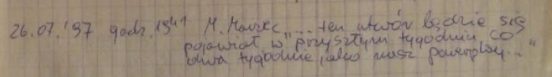 26.07.'97 godz. 15⁴¹ M. Marzec „... ten utwór będzie się
pojawiał w przyszłym tygodniu co
dwa tygodnie, jako nasz powerplay..."